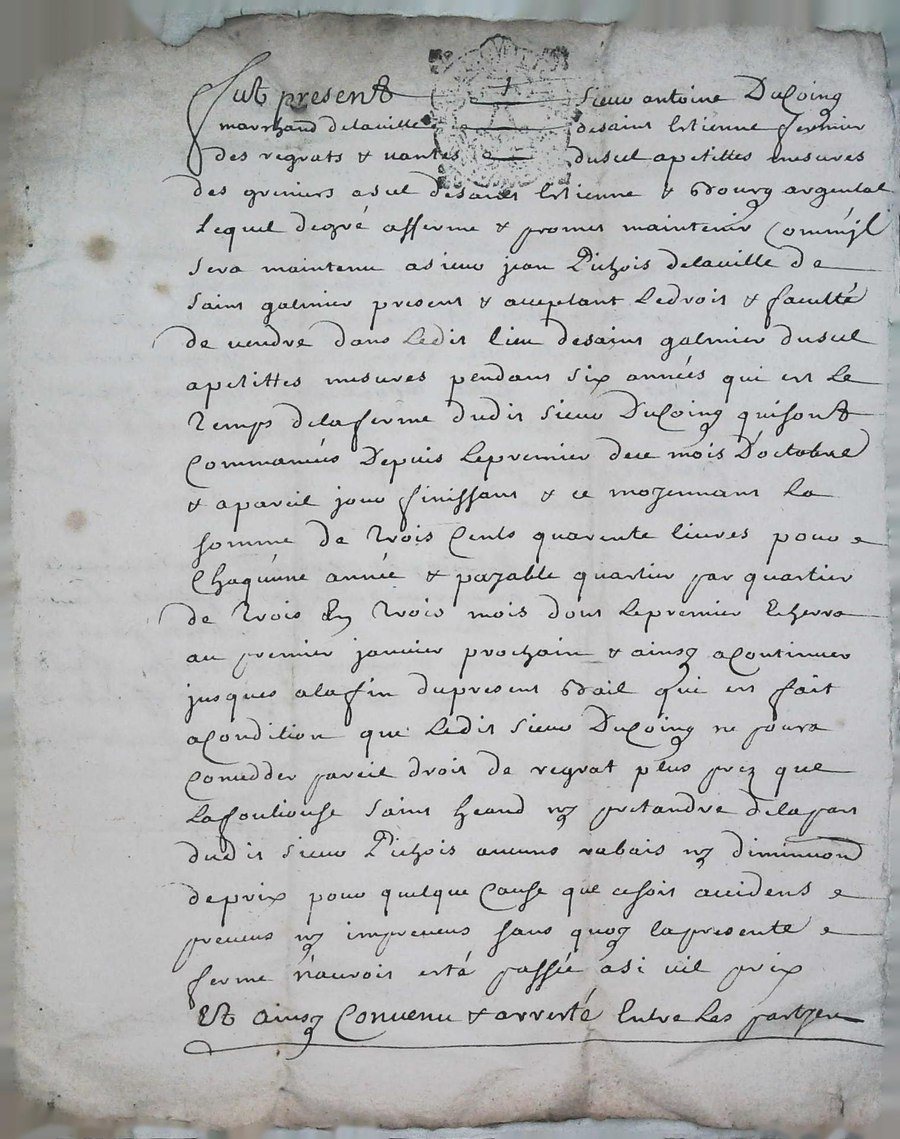 Fut present sieur antoine DuCoing
marchand delaville desaint Estienne fermier
des regrats & vantes dusel apetittes mesures
des greniers asel desaint Estienne & Bourg argental
Lequel degré afferme & promet maintenir Comm'jl
sera maintenu asieur jean Pichois delaville de
saint galmier present & aceptant Ledroit & faculté
de vendre dans Ledit lieu desaint galmier dusel
apetittes mesures pendant six années qui est le
Temps delaferme dudit sieur DuCoing quisont
Commancées Depuis Lepremier dece mois D'octobre
& apareil jour finissant & ce moyennant La
somme de Trois Cents quarente livres pour
Chaquune année & payable quartier par quartier
de Trois En Trois mois dont Lepremier Echerra
au premier janvier prochain & ainsy aContinuer
jusques alafin dupresent Bail qui est fait
aCondition que Ledit sieur DuCoing ne poura
Concedder pareil droit de regrat plus prez que
Lafouliouse saint heand ny pretandre delapart
dudit sieur Pichois aucuns rabais ny diminuon
deprix pour quelque Cause que cesoit accidens
preveus ny impreveus sans quoy lapresente
ferme n'auroit esté passée asi vil prix
Et ainsy Convenu & arresté Entre Les partyes